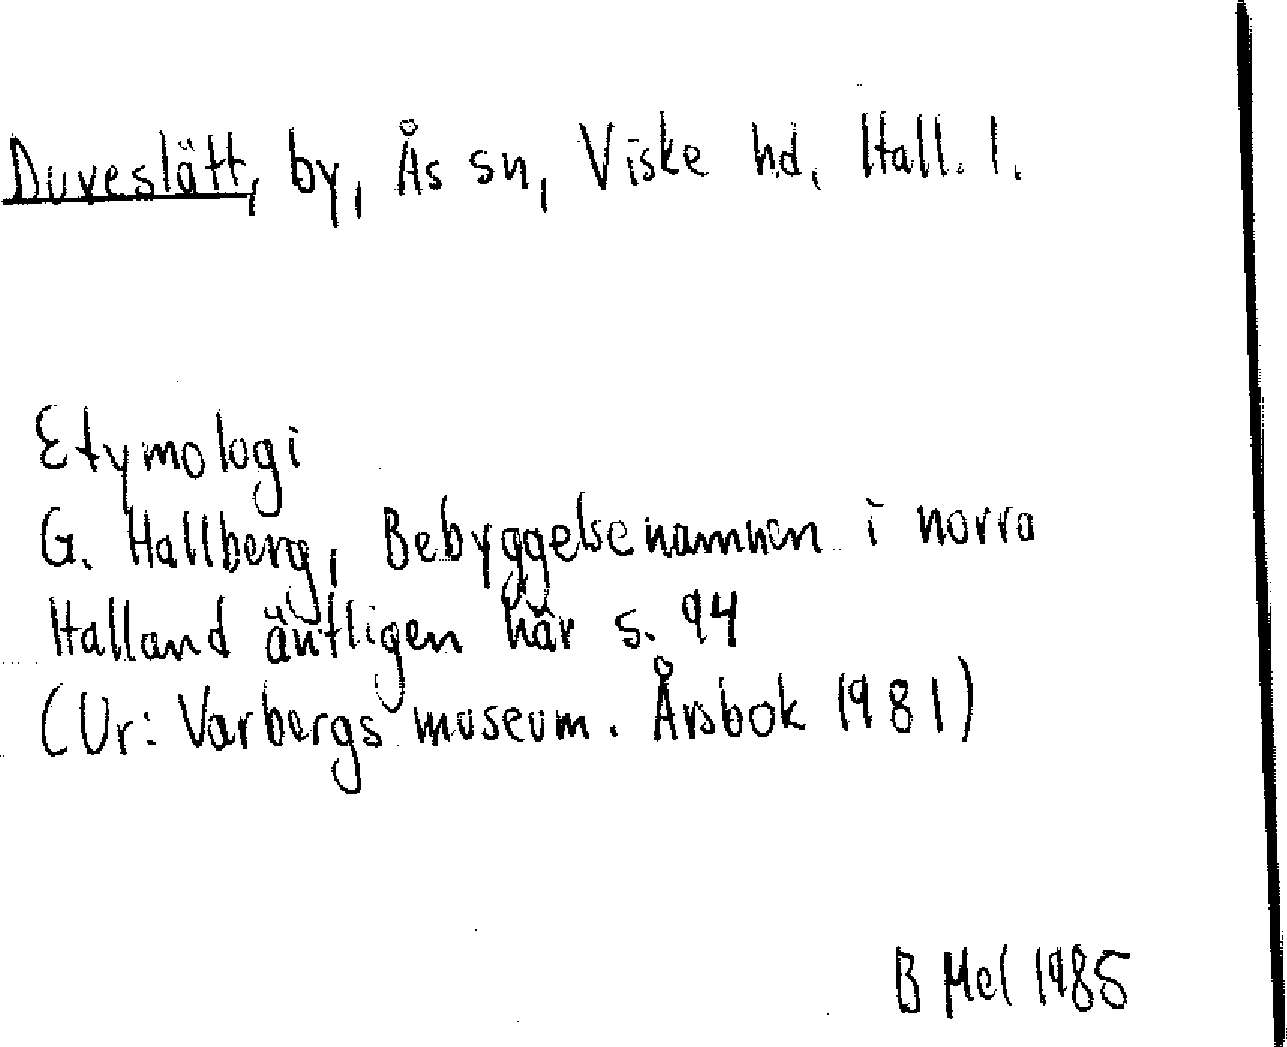 Duveslätt, by, Ås sn, Viske hd, Hall. l.
Etymologi
G. Hallberg, Bebyggelsenamnen i norra
Halland äntligen här s. 94
(Ur: Varbergs museum. Årsbok 1981)
B Mel 1985